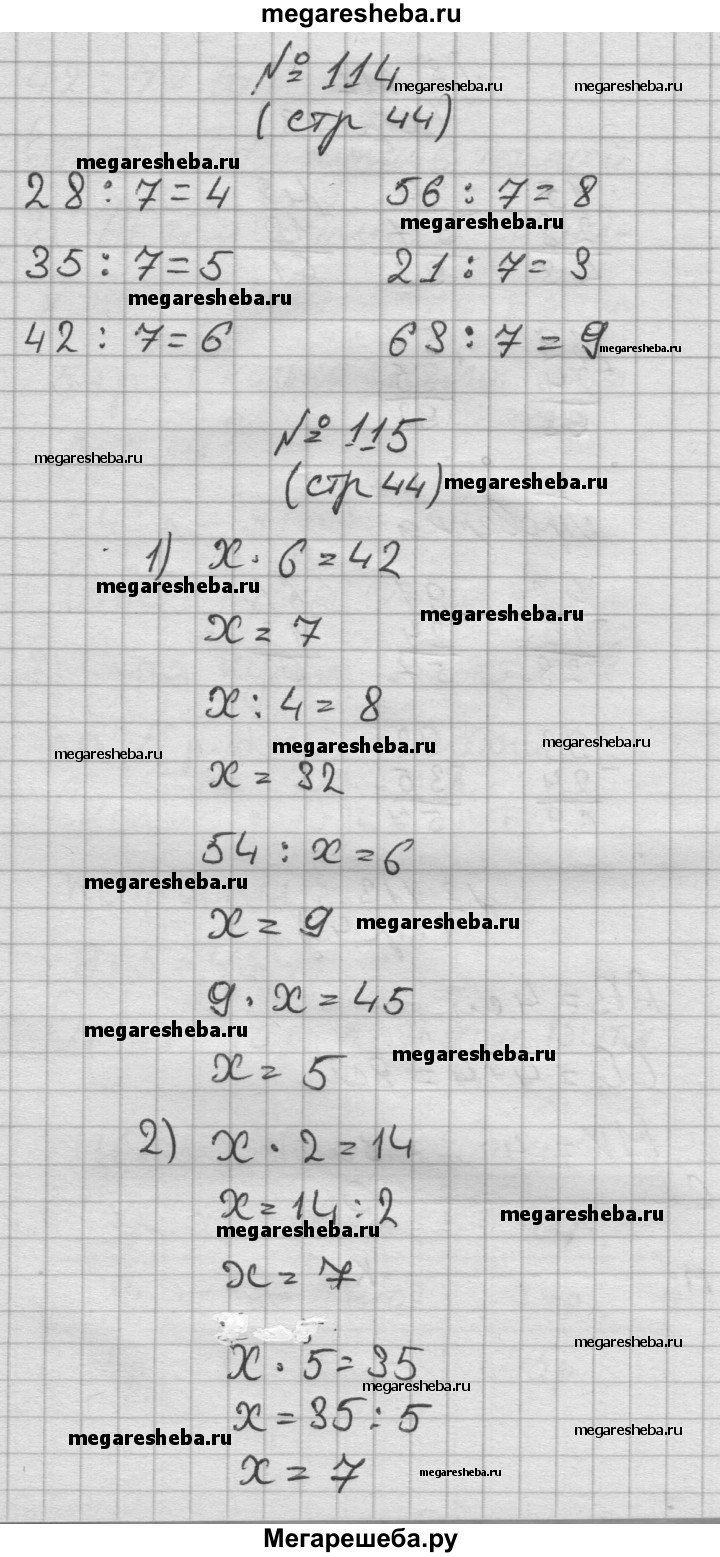 megaresheba.ru
№ 114
megaresheba.ru
(стр 44)
megaresheba.ru
28 : 7 = 4 56 : 7 = 8
megaresheba.ru
35 : 7 = 5 21 : 7 = 3
megaresheba.ru
42 : 7 = 6 63 : 7 = 9
megaresheba.ru
№ 115
megaresheba.ru
(стр 44)
megaresheba.ru
1) x · 6 = 42
megaresheba.ru
megaresheba.ru
x = 7
x : 4 = 8
megaresheba.ru
megaresheba.ru
megaresheba.ru
x = 32
54 : x = 6
megaresheba.ru
x = 9
megaresheba.ru
9 · x = 45
megaresheba.ru
megaresheba.ru
x = 5
2) x · 2 = 14
x = 14 : 2
megaresheba.ru
megaresheba.ru
x = 7
megaresheba.ru
x · 5 = 35
megaresheba.ru
x = 35 : 5
megaresheba.ru
megaresheba.ru
x = 7
megaresheba.ru
Мегарешеба.ру